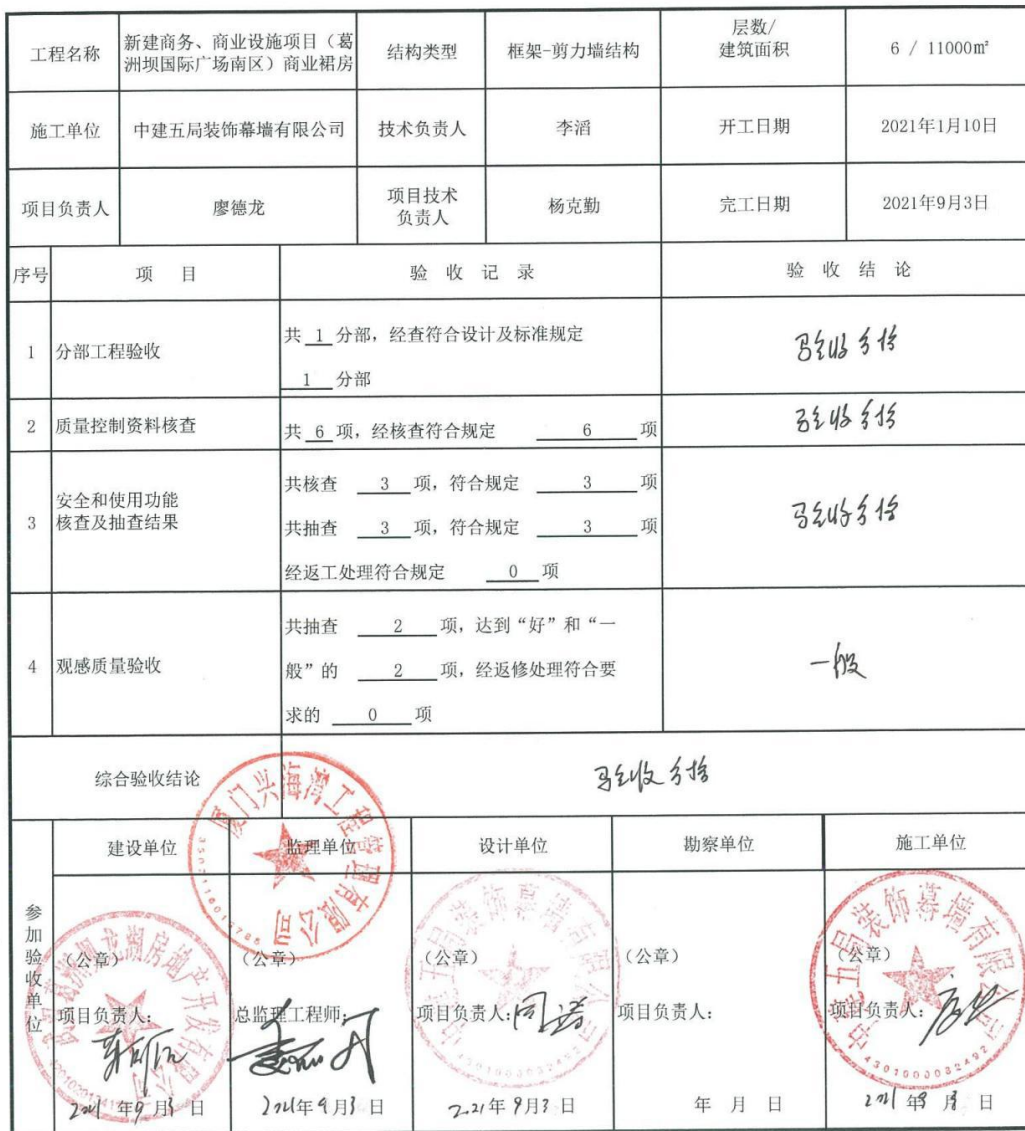 工程名称
新建商务、商业设施项目（葛
洲坝国际广场南区）商业裙房
结构类型
框架-剪力墙结构
层数/
建筑面积
6 / 11000㎡
施工单位
中建五局装饰幕墙有限公司
技术负责人
李滔
开工日期
2021年1月10日
项目负责人
廖德龙
项目技术
负责人
杨克勤
完工日期
2021年9月3日
序号
项 目
验 收 记 录
验 收 结 论
1
分部工程验收
共 1 分部，经查符合设计及标准规定
1 分部
验收合格
2
质量控制资料核查
共 6 项，经核查符合规定 6 项
验收合格
3
安全和使用功能
核查及抽查结果
共核查 3 项，符合规定 3 项
共抽查 3 项，符合规定 3 项
经返工处理符合规定 0 项
验收合格
4
观感质量验收
共抽查 2 项，达到“好”和“一
般”的 2 项，经返修处理符合要
求的 0 项
一般
综合验收结论
验收合格
厦门兴海湾工程管理有限公司
参加验收单位
建设单位
监理单位
设计单位
勘察单位
施工单位
（公章）
项目负责人：
2021年9月3日
（公章）
总监理工程师：
2021年9月3日
（公章）
项目负责人：
2021年9月3日
（公章）
项目负责人：
年 月 日
（公章）
项目负责人：
2021年9月3日
中建五局装饰幕墙有限公司
4301000032492